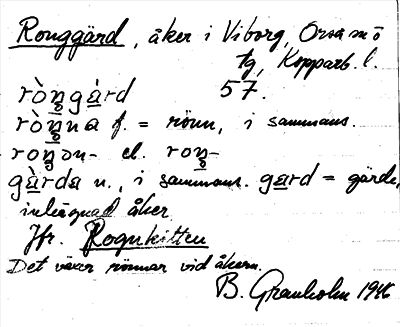 Ronggärd, åker i Viborg, Orsa m ö
tg, Kopparb. l.
ròn̥gàrd 57.
ròn̥na f. = rönn, i sammans.
ron̥on- el. ron̥-
gàrda n., i sammans. gard = gärde,
inhägnad åker
Jfr. Rognkitten
Det växer rönnar vid åkern.
B. Granholm 1946